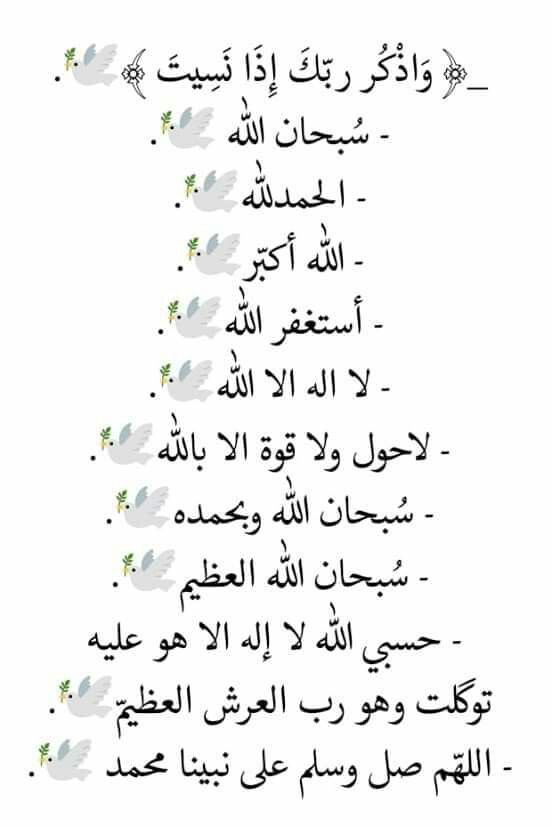 _﴿ وَاذْكُر ربّكَ إِذَا نَسِيتَ ﴾🕊️.
- سُبحان الله 🕊️.
- الحمدلله🕊️.
- الله أكبّر🕊️.
- أستغفر الله🕊️.
- لا اله الا الله🕊️.
- لاحول ولا قوة الا بالله🕊️.
- سُبحان الله وبحمده🕊️.
- سُبحان الله العظيم🕊️.
- حسبي الله لا إله الا هو عليه
توگلت وهو رب العرش العظيمّ🕊️.
- اللهّم صل وسلم على نبينا محمد 🕊️.